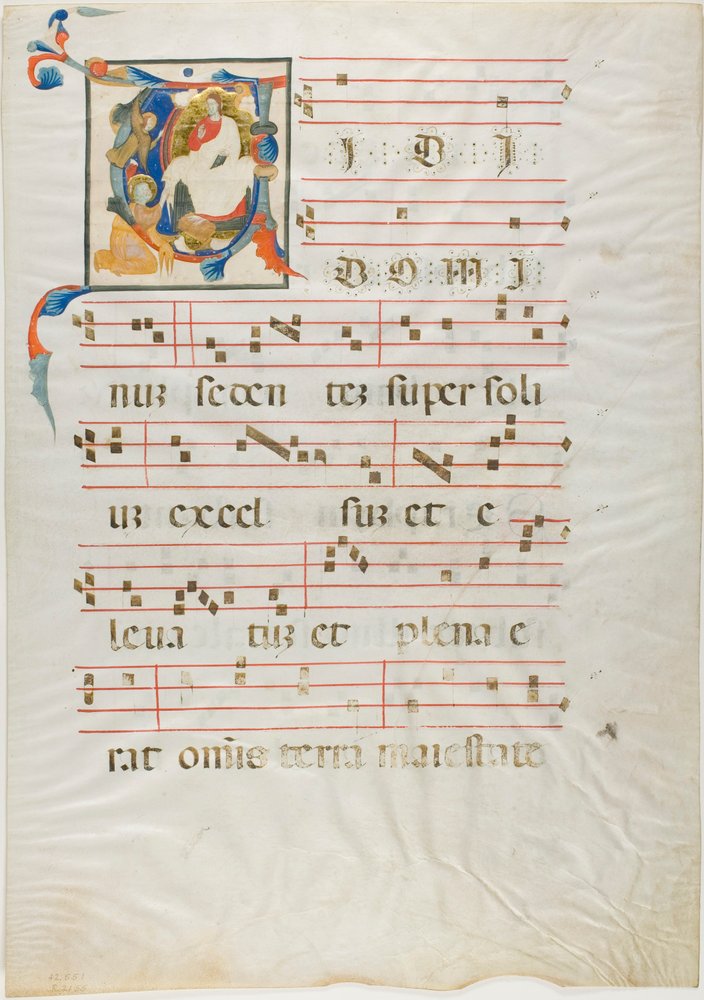 VIDI
DOMI
num seden tem super soli
um excel sum et e
leua tum et plena e
rat omĩs terra maiestate
42.551